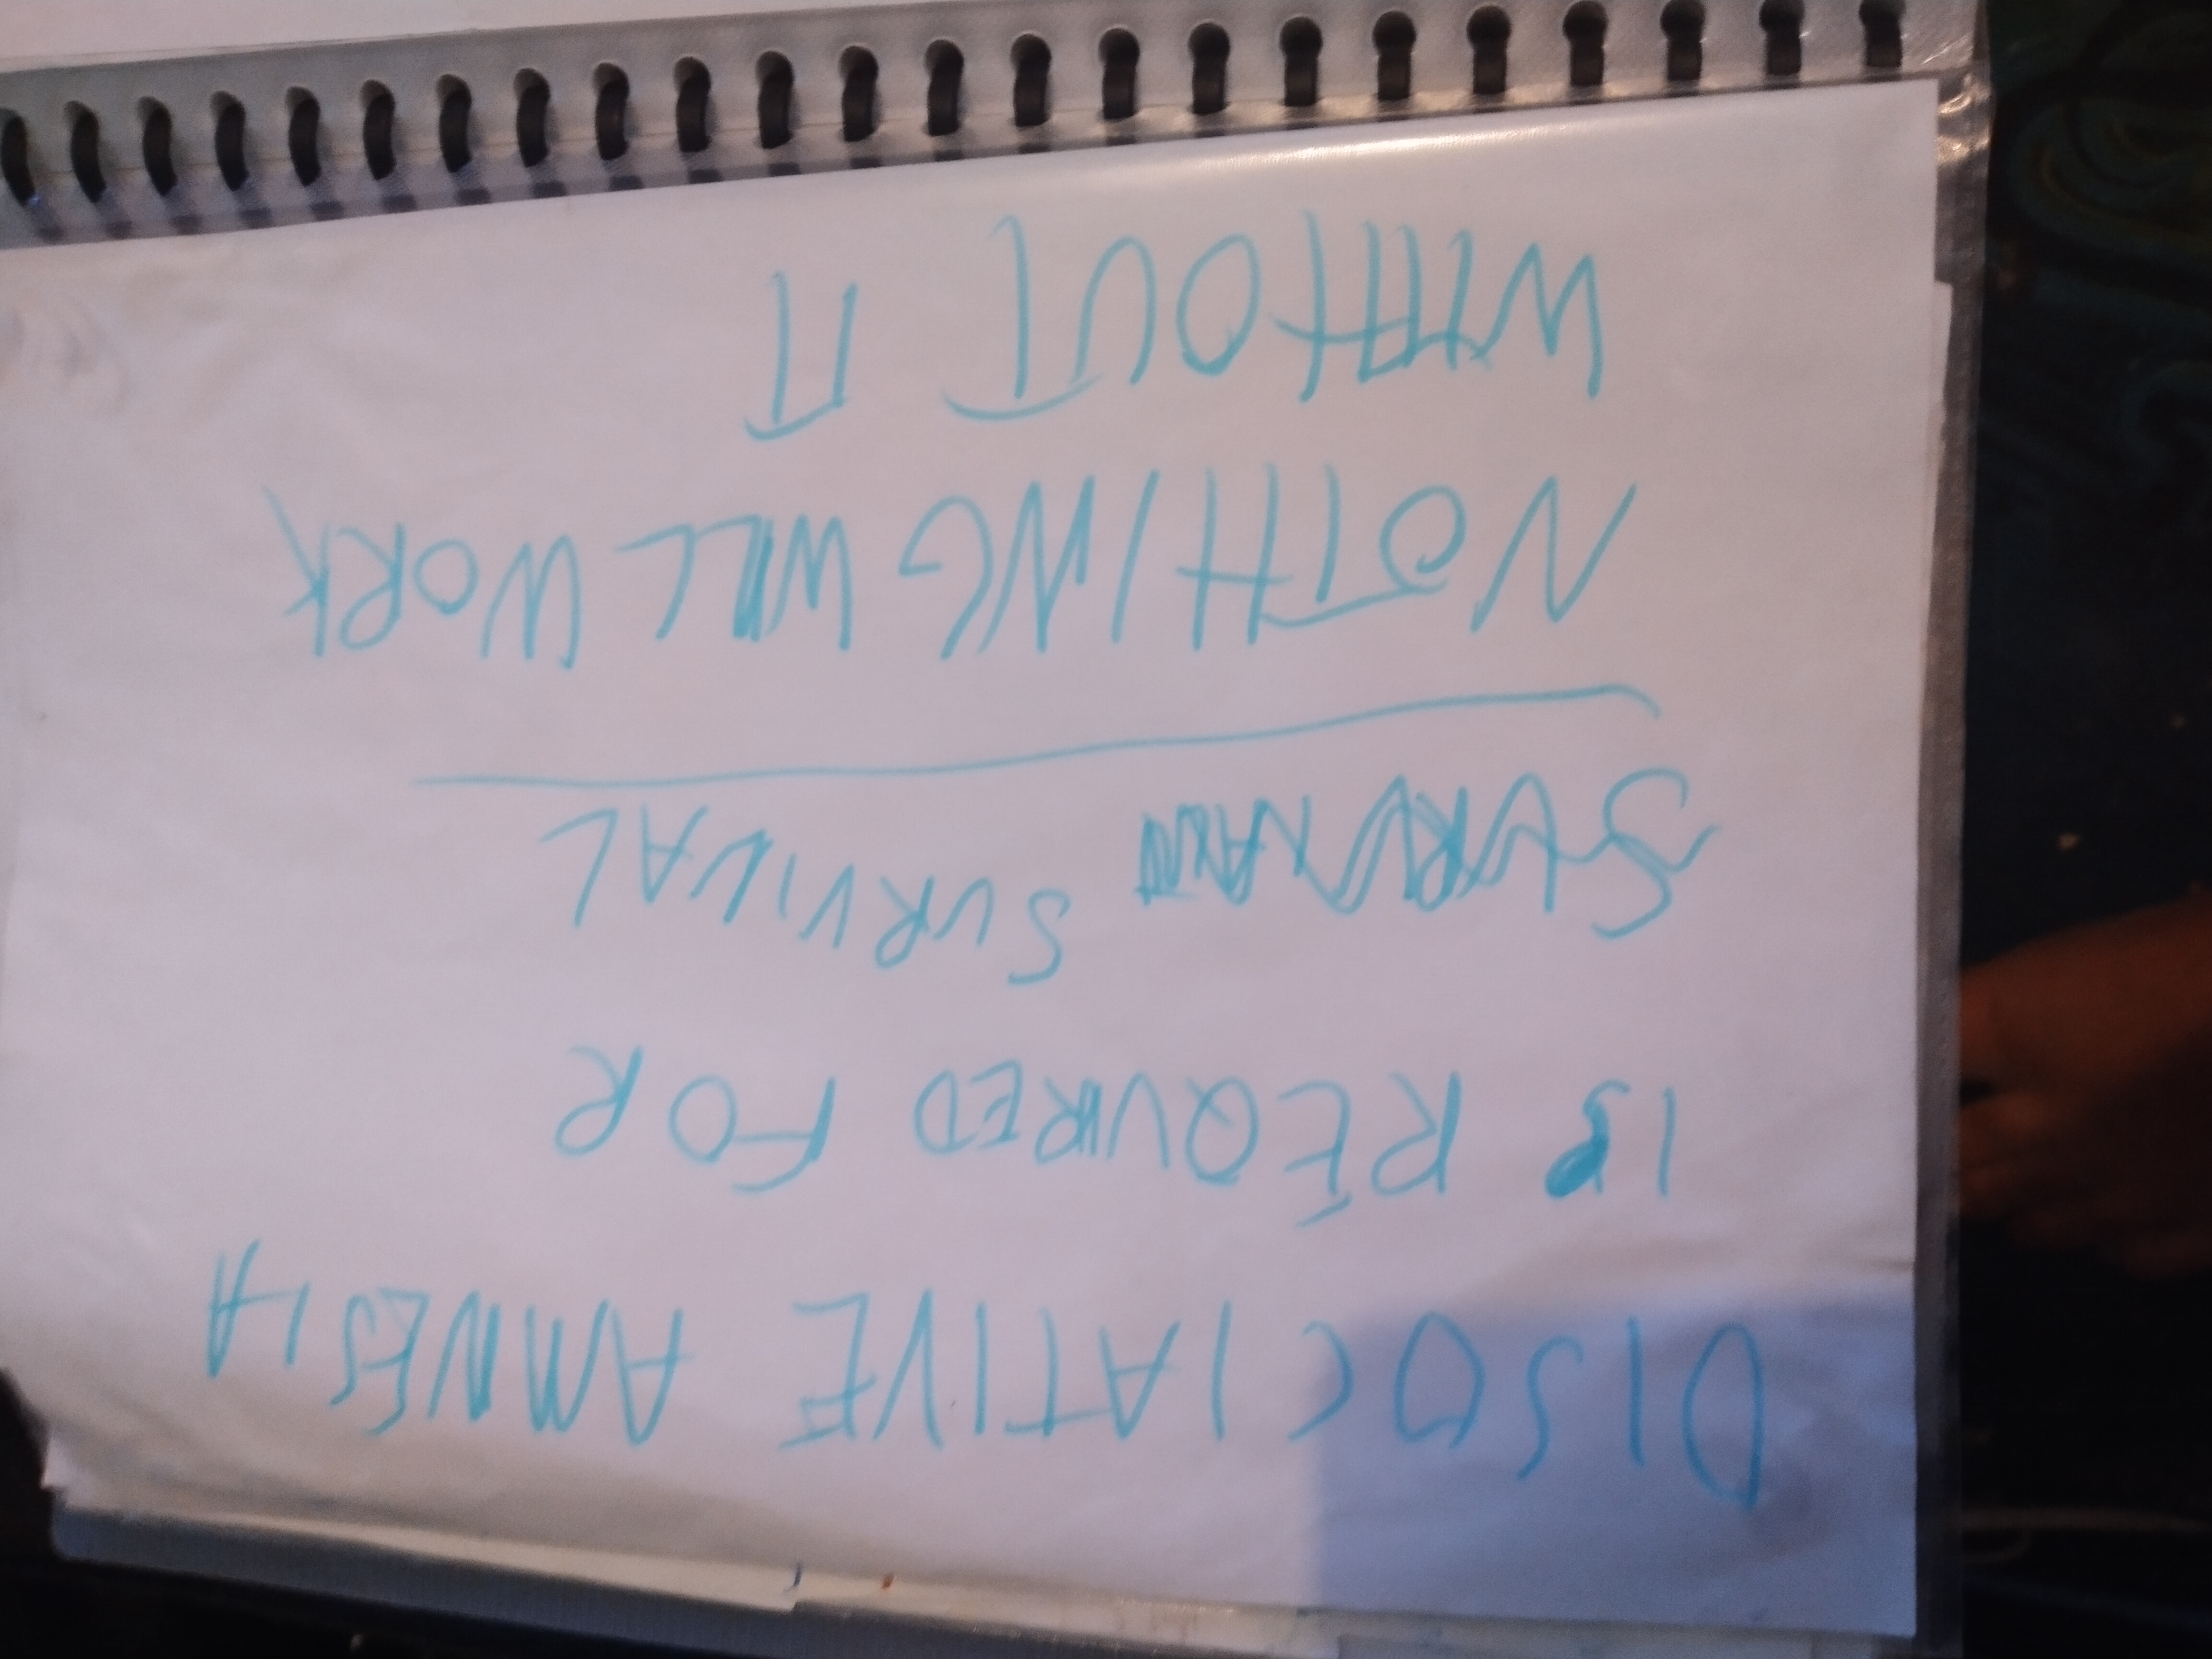 DISOCIATIVE AMNESIA
IS REQUIRED FOR
SURVIVAL
NOTHING WILL WORK
WITHOUT IT